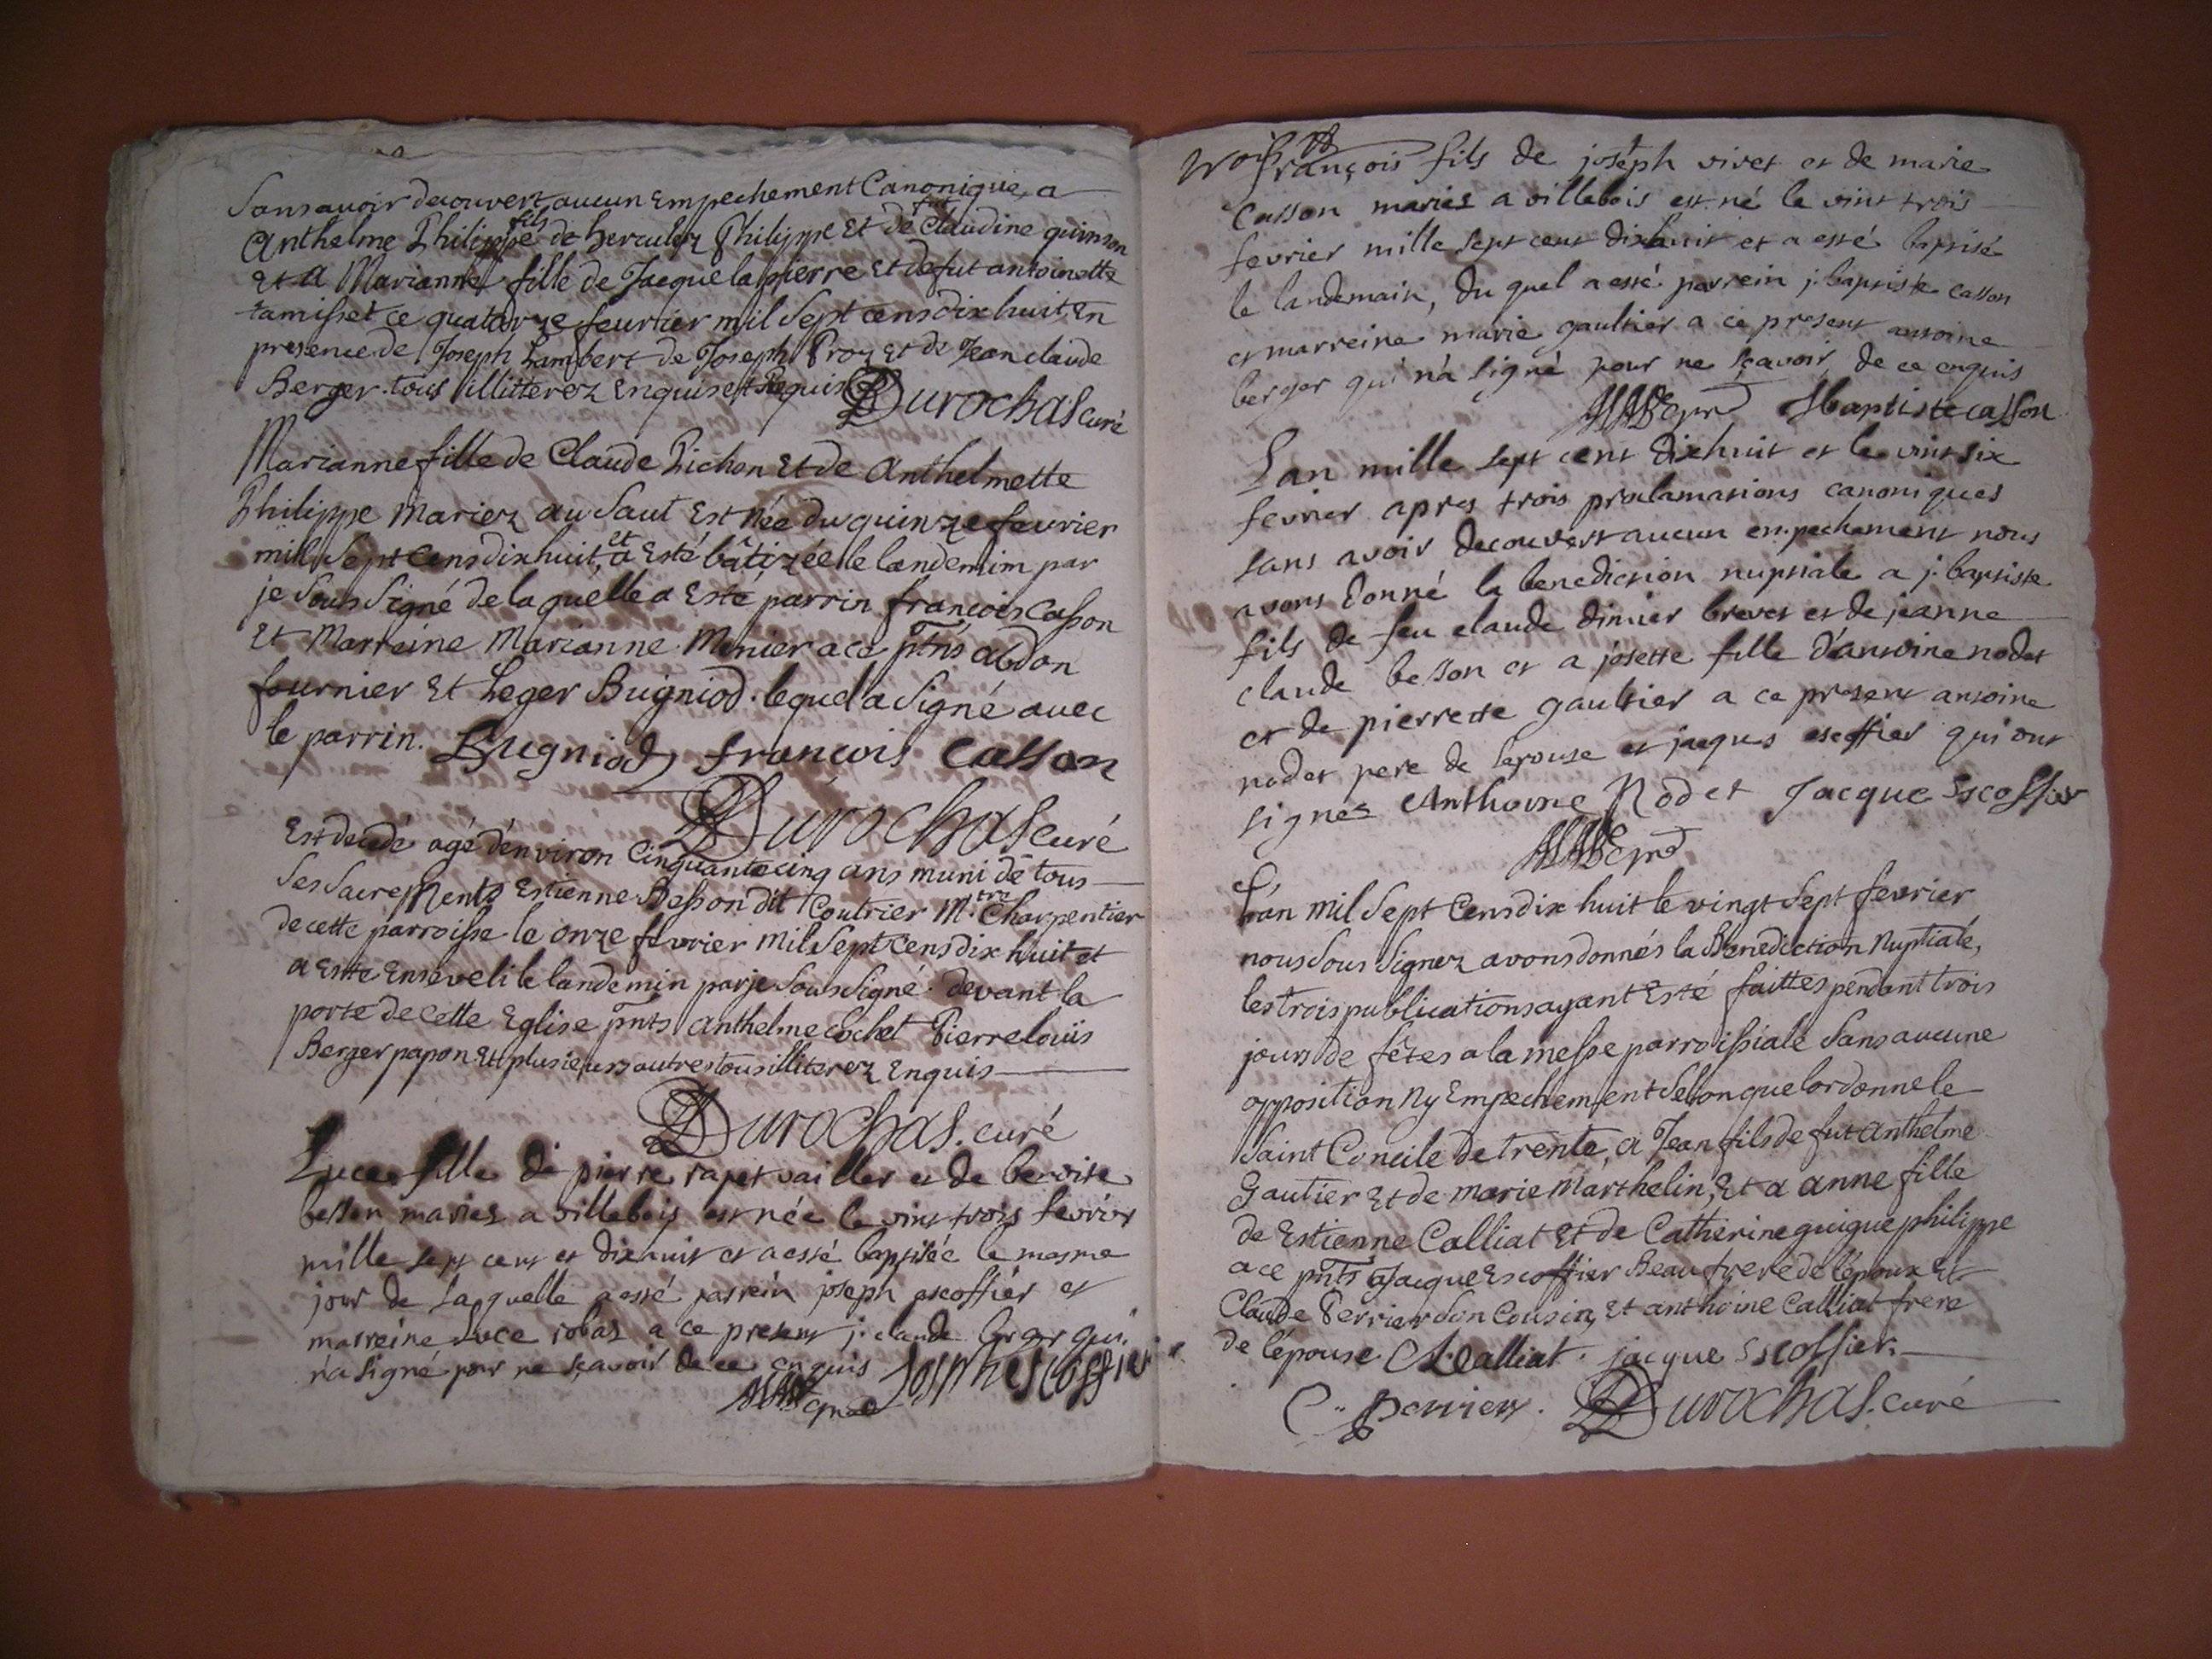 Sans avoir decouvert aucun Empechement Canonique, a
Anthelme Philippe fils de herculez Philippe Et de fut Claudine quinson
Et a Marianne fille de Jacque lapierre Et de fut antoinette
tamisset ce quatorze feurier mil Sept cens dix huit En
presence de Joseph Lambert de Joseph Proz Et de Jean claude
Berger tous illitterez Enquis et Requis Durochas curé
Marianne fille de Claude Pichon Et de Anthelmette
Philippe Mariez au Saut Est Née du quinze feurier
mill Sept Cens dix huit, et a Esté bâtizée le landemim par
je Sous Signé de la quelle a Este parrin francois Casson
Et Marreine Marianne Monier a ce pnts abdon
fournier Et Leger Bugniod. lequel a Signé avec
le parrin. Bugniod francois Casson
Durochas curé
Est decedé agé d'environ Cinquante cinq ans muni de tous
Ses Sacrements Estienne Besson dit Coutrier M.tre Charpentier
de cette parroisse le onze fevrier mil Sept cens dix huit et
a Este Enseveli le landemin par je Sous Signé devant la
porte de cette Eglise pnts Anthelme Cochet Pierre louis
Berger papon Et plusieurs autres tous illiterez Enquis
Durochas. curé
Luce fille de pierre rapet vailler et de benoite
besson mariez a villebois est née le vint trois fevrier
mille sept cent et dixhuit et a esté baptisée le mesme
jour de laquelle a esté parrein joseph escoffier et
marreine Luce robaz a ce present j. claude berger qui
n'a signé pour ne sçavoir de ce enquis Joseph escoffier
françois fils de joseph vivet et de marie
Casson mariez a villebois est né le vint trois
fevrier mille sept cent dixhuit et a esté baptisé
le landemain, du quel a esté parrein j. baptiste casson
et marreine marie gaultier a ce present antoine
berger qui n'a signé pour ne sçavoir de ce enquis
Jbaptiste casson
L'an mille sept cent dixhuit et le vint six
fevrier apres trois proclamations canoniques
sans avoir decouvert aucun empechement nous
avons donné la benediction nuptiale a j. baptiste
fils de feu claude dinier brevet et de jeanne
claude besson et a josette fille d'antoine nodet
et de pierrette gaultier a ce present antoine
nodet pere de lepouse et jaques escoffier qui ont
signés Anthoine Nodet Jacque Escoffier
L'an mil Sept Cens dix huit le vingt Sept fevrier
nous Sous Signez avons donnés la Benediction Nuptiale,
les trois publications ayant Esté faittes pendant trois
jours de fêtes a la messe parroissiale Sans aucune
opposition Ny Empechement Selon que l'ordonne le
Saint Concile de trente, a Jean fils de fut Anthelme
Gautier Et de marie Marthelin, Et a anne fille
de Estienne Calliat Et de Catherine guigue philippe
a ce pnts Jacque Escoffier Beau frere de l'époux Et
Claude Perrier Son Cousin, Et anthoine Calliat frere
de l'épouse A. Calliat. jacque Escoffier.
C. perrier. Durochas. curé